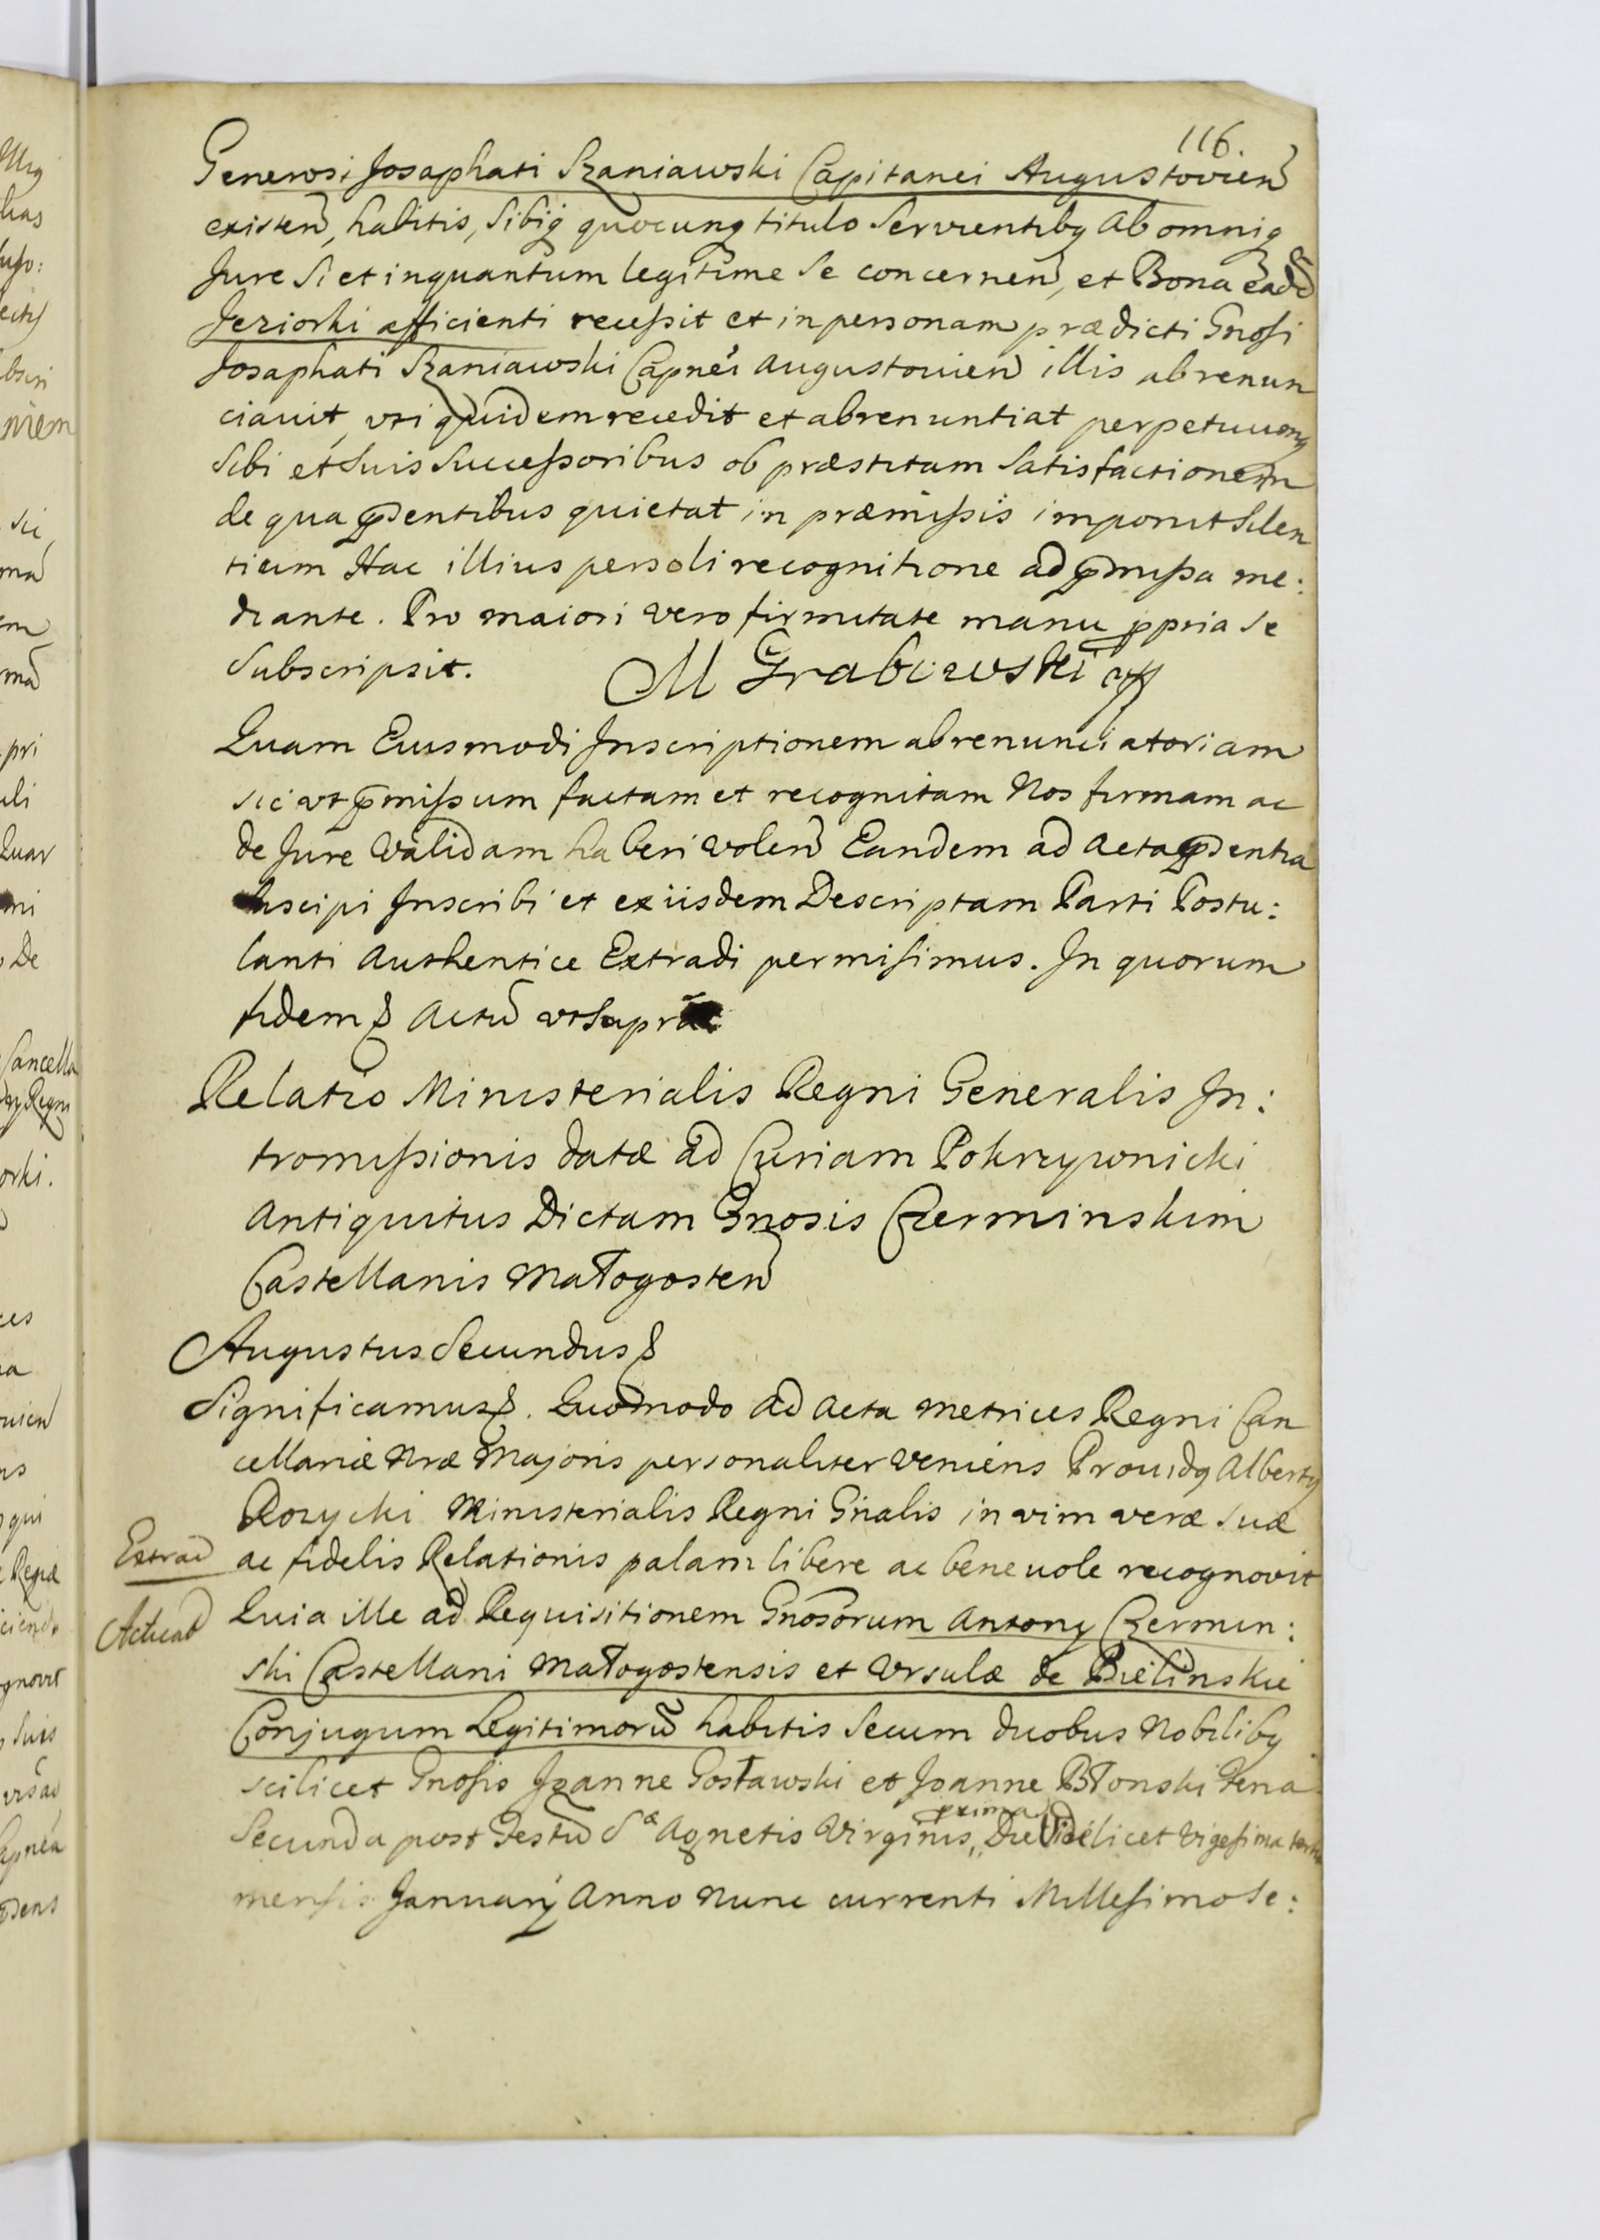 116.
Generosi Josaphati Szaniawski Capitanei Augustovien
existen, habitis, sibiq quocunq titulo servientibq ab omniq
Jure si et inquantum legitime se concernen, et Bona ead
Jeziorki afficienti recessit et in personam prædicti Gnosi
Josaphati Szaniawski Capnei Augustouien illis abrenun
ciauit, vti quidem recedit et abrenuntiat perpetuuonq
Sibi et Suis Successoribus ob præstitam Satisfactionem
de qua pñdentibus quietat in præmissis imponit Silen
tium Hac illius persoli recognitione ad pmissa me:
diante. Pro maiori vero firmitate manu ppria se
Subscripsit. M Grabowski
Quam Eiusmodi Inscriptionem abrenunciatoriam
sic vt pmissum factam et recognitam Nos firmam ac
de Jure validam haberi volen Eandem ad Acta pdentia
suscipi Inscribi et ex iisdem Descriptam Parti Postu:
lanti Authentice Extradi permisimus. In quorum
fidem Actu vt Supra
Relatio Ministerialis Regni Generalis In:
tromissionis datæ ad Curiam Pokrzywnicki
Antiquitus Dictam Gnosis Czerminskim
Castellanis Małogosten
Augustus Secundus
Significamus. Quomodo ad Acta Metrices Regni Can
cellariæ Nræ Majoris personaliter veniens Prouidq Albertq
Rozycki Ministerialis Regni Gnalis in vim veræ suæ
Extrad
ac fidelis Relationis palam libere ac beneuole recognovit
Acticat
Quia ille ad Requisitionem Gnosorum Antony Czermin:
ski Castellani Małogostensis et Vrsulæ de Bielinskie
Conjugum Legitimoru habitis Secum duobus Nobilibq
scilicet Gnosis Joanne Gosławski et Joanne Błonski Feria
prima
Secunda post Festu S. Agnetis Virginis, Die Videlicet Vigesima tertia
mensis January Anno Nunc currenti Millesimo Se: